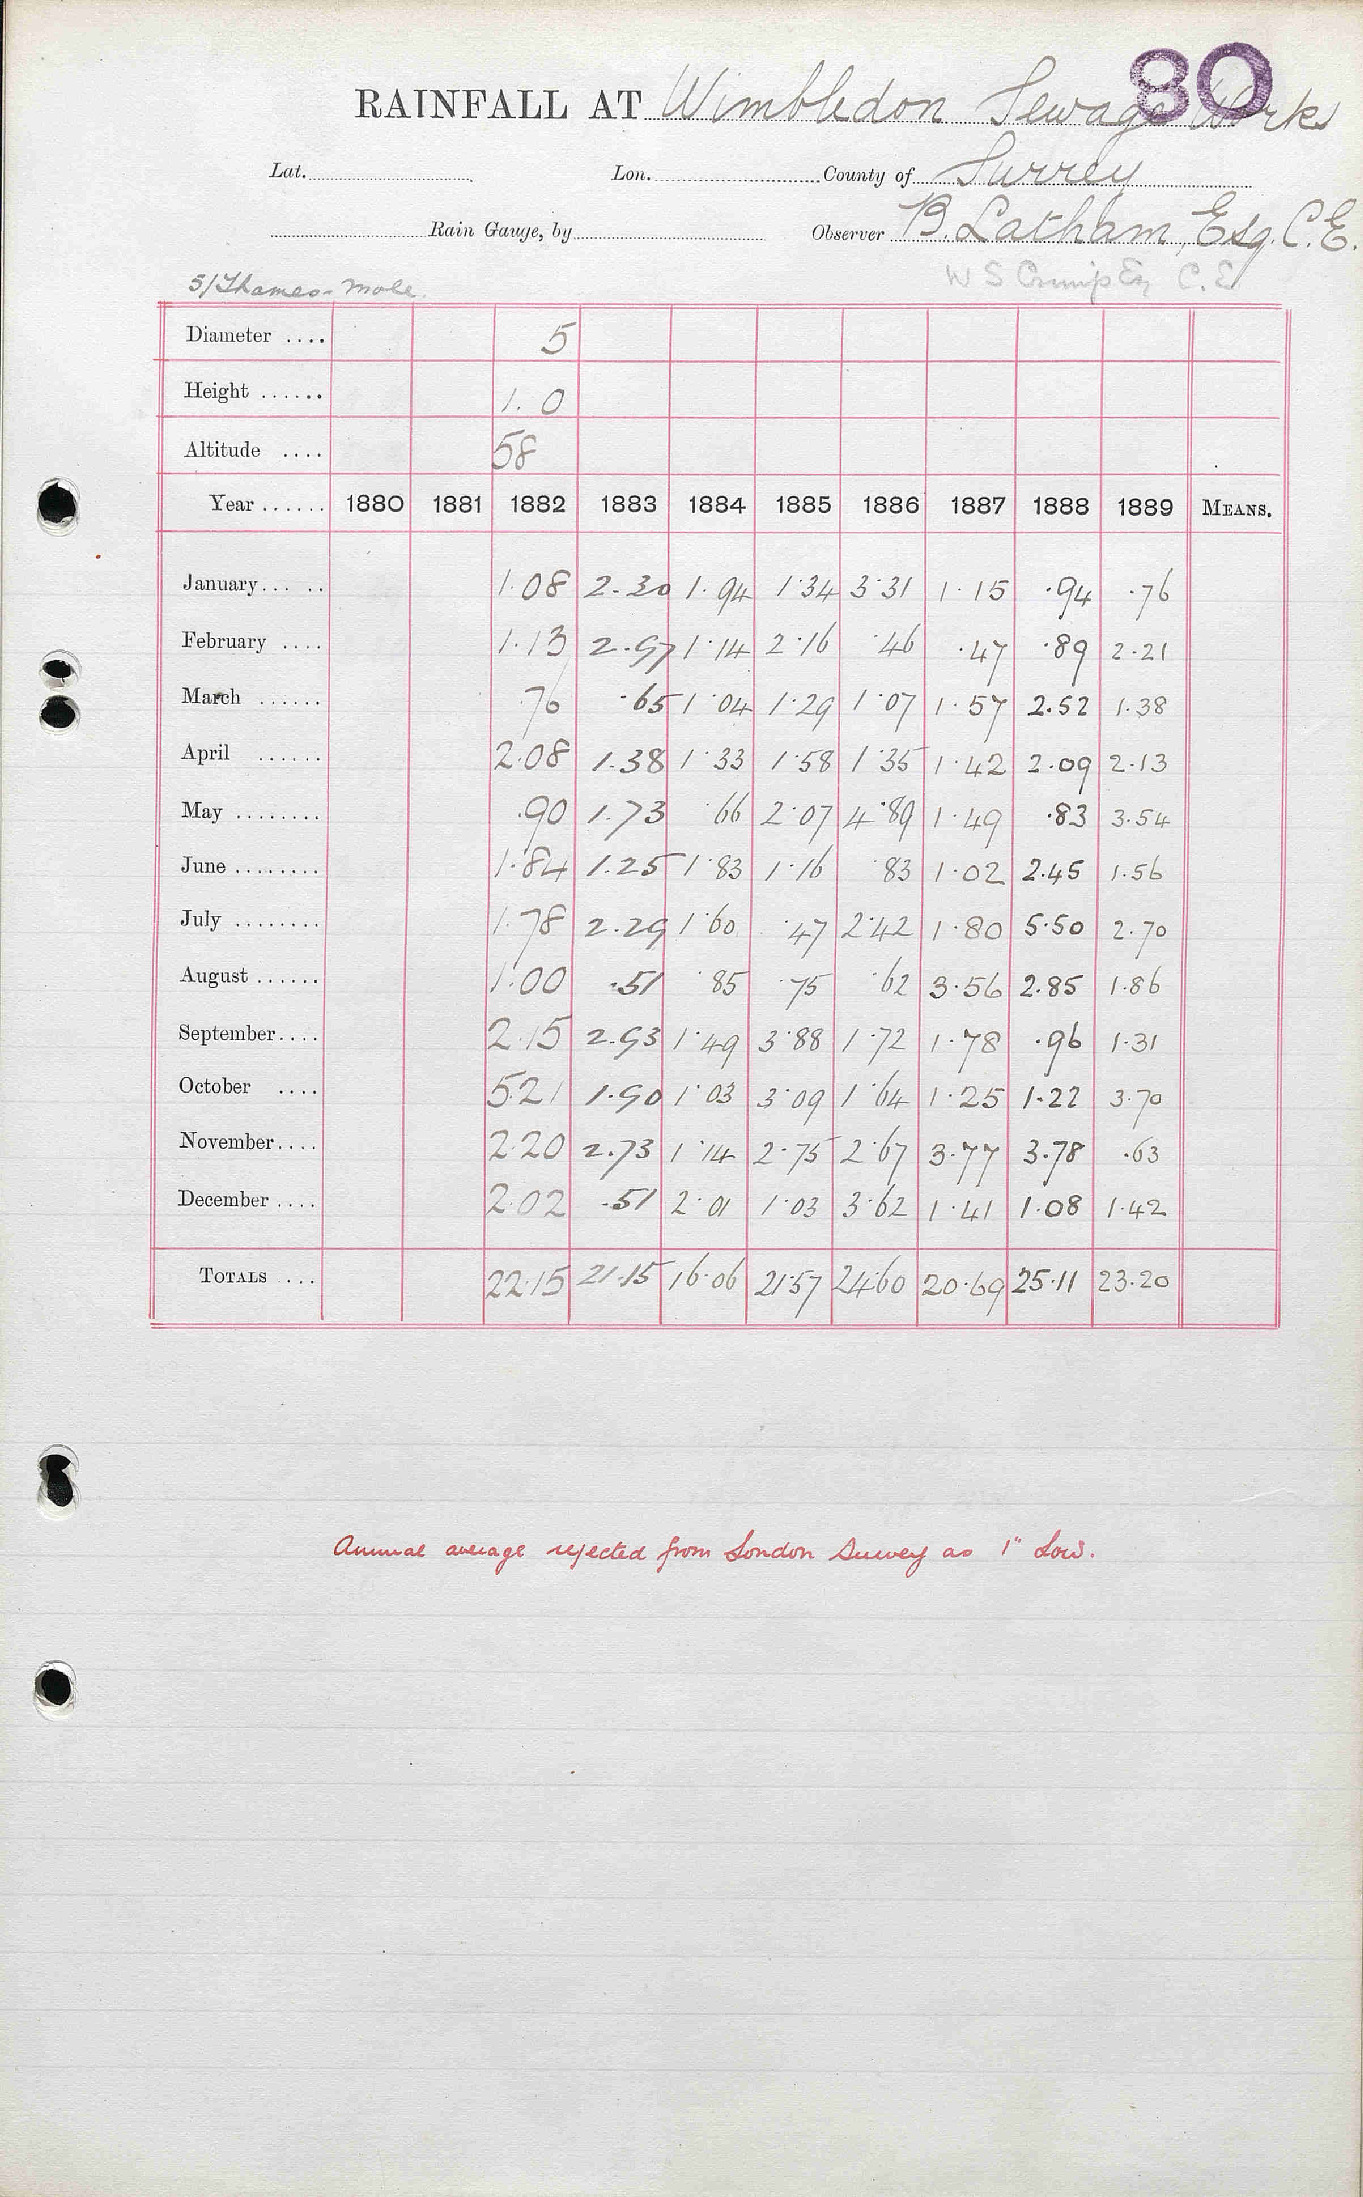 80
RAINFALL AT Wimbledon Sewage Works
Lat. Lon. County of Surrey
Rain Gauge, by Observer B. Latham, Esq. C.E.
W S Crimp Esq C.E.
5/Thames-Mole.
Diameter .... 5
Height ...... 1. 0
Altitude .... 58
Year ...... 1880 1881 1882 1883 1884 1885 1886 1887 1888 1889 MEANS.
January...... 1.08 2.30 1.94 1.34 3.31 1.15 .94 .76
February .... 1.13 2.97 1.14 2.16 .46 .47 .89 2.21
March ...... .76 .65 1.04 1.29 1.07 1.57 2.52 1.38
April ...... 2.08 1.38 1.33 1.58 1.35 1.42 2.09 2.13
May ........ .90 1.73 .66 2.07 4.89 1.49 .83 3.54
June ........ 1.84 1.25 1.83 1.16 .83 1.02 2.45 1.56
July ........ 1.78 2.29 1.60 .47 2.42 1.80 5.50 2.70
August ...... 1.00 .51 .85 .75 .62 3.56 2.85 1.86
September.... 2.15 2.93 1.49 3.88 1.72 1.78 .96 1.31
October .... 5.21 1.90 1.03 3.09 1.64 1.25 1.22 3.70
November.... 2.20 2.73 1.14 2.75 2.67 3.77 3.78 .63
December .... 2.02 .51 2.01 1.03 3.62 1.41 1.08 1.42
TOTALS ... 22.15 21.15 16.06 21.57 24.60 20.69 25.11 23.20
Annual average rejected from London Survey as 1" low.